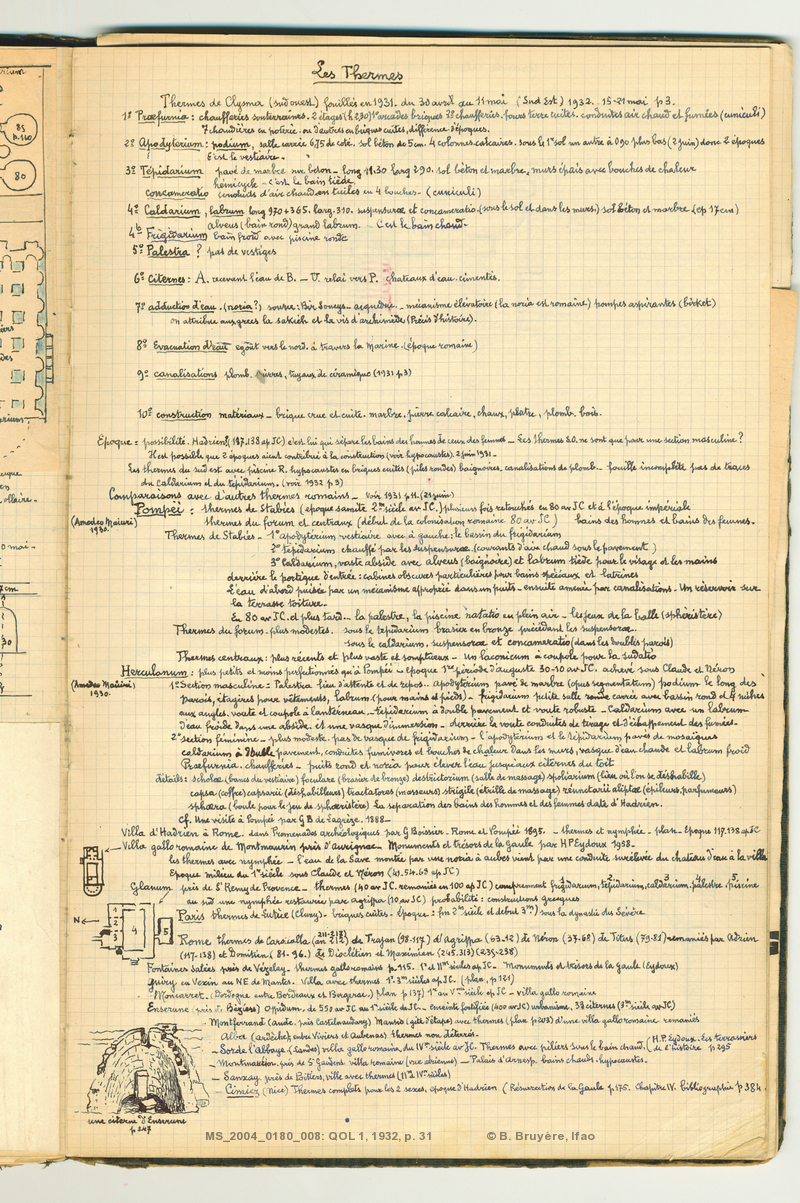 Les Thermes
Thermes de Clysma (sud ouest) fouillés en 1931. du 30 avril au 11 mai (Sud Est) 1932. 15-21 mai p 3.
1º Praefurnia: chaufferies souterraines. 2 étages (h 2,30) 1º arcades briques 2º chaufferies. fours terre cuite. conduits air chaud et fumées (cuniculi)
7 chaudières en poterie ou d'autres en briques cuites, différence d'époques.
2º Apodyterium: podium, salle carrée 6,75 de coté. sol béton de 5cm. 4 colonnes calcaires. sous le 1er sol un autre à 0,90 plus bas (2 juin) donc 2 époques
C'est le vestiaire.
3º Tepidarium pavé de marbre sur béton - long 11.30 larg 2.90. sol béton et marbre, murs épais avec bouches de chaleur
hémicycle - c'est le bain tiède
concameratio conduits d'air chaud en tuiles en 4 bouches - (cuniculi)
4º Caldarium, labrum long 9.70 + 3.65. larg. 3.10. suspensurae et concameratio (sous le sol et dans les murs) sol béton et marbre (ep 17cm)
alveus (bain rond) grand labrum. C'est le bain chaud.
4b Frigidarium bain froid avec piscine ronde
5º Palestra ? pas de vestiges
6º Citernes: A. recevant l'eau de B. - V. relai vers P. chateaux d'eau. cimentés.
7º adduction d'eau. (noria?) source: Bir Soueys - aqueduc - mécanisme élévatoire (la noria est romaine) pompes aspirantes (birket)
on attribue aux grecs la sakieh et la vis d'archimède (Précis d'histoire).
8º Evacuation d'eau egoût vers le nord. à travers la Marine. (époque romaine)
9º canalisations plomb. pierres, tuyaux de céramique (1931 p 3)
10º construction matériaux - brique crue et cuite. marbre, pierre calcaire, chaux, platre, plomb. bois.
Epoque: possibilité. Hadrien (117.138 ap JC) c'est lui qui sépare les bains des hommes de ceux des femmes - Les thermes S.O. ne sont que pour une section masculine?
Il est possible que 2 époques aient contribué à la construction (voir hypocaustes). 2 juin 1931 -
Les thermes du sud est avec piscine R. hypocaustes en briques cuites (piles rondes) baignoires, canalisations de plomb - fouille incomplète pas de traces
du Caldarium et du tepidarium. (voir 1932 p 3)
Comparaisons avec d'autres thermes romains - Voir 1931 p 11. (21 juin)
Pompei: thermes de Stabies (epoque samnite 2me siècle av JC.) plusieurs fois retouchés en 80 av JC et à l'époque impériale
(Amadeo Maiuri) 1930. thermes du forum et centraux (début de la colonisation romaine 80 av JC) bains des hommes et bains des femmes.
Thermes de Stabies - 1º apodyterium vestiaire avec à gauche: le bassin du frigidarium
2º tepidarium chauffé par les suspensurae. (courants d'air chaud sous le pavement)
3º caldarium, vaste abside avec alveus (baignoire) et labrum tiède pour le visage et les mains
derrière le portique d'entrée: cabines obscures particulières pour bains spéciaux et latrines
L'eau d'abord puisée par un mécanisme approprié dans un puits - ensuite amenée par canalisations - Un réservoir sur
la terrasse toiture -
En 80 av JC. et plus tard - la palestre, la piscine natatio en plein air - les jeux de la balle (sphéristère)
Thermes du forum - plus modestes. sous le tepidarium brasier en bronze précédant les suspensurae
- sous le caldarium, suspensurae et concameratio (dans les doubles parois)
Thermes centraux: plus récents et plus vaste et somptueux - un laconicum à coupole pour la sudatio
Herculanum: plus petits et moins perfectionnés qu'à Pompei - epoque 1re période d'auguste 30-10 av JC. achevé sous Claude et Néron
(Amadeo Maiuri) 1930. 1º Section masculine: Palestra lieu d'attente et de repos - apodyterium pavé de marbre (opus segmentatum) podium le long des
parois, étagères pour vêtements, labrum (pour mains et pieds) - frigidarium petite salle ronde carrée avec bassin rond et 4 niches
aux angles. voute et coupole à lanterneau. - tepidarium à double pavement et voute robuste - Caldarium avec un labrum
d'eau froide dans une abside. et une vasque d'immersion - derrière la voute conduites de tirage et d'échappement des fumées.
2º section féminine - plus modeste. pas de vasque de frigidarium - l'apodyterium et le tepidarium pavés de mosaïques
caldarium à double pavement, conduites fumivores et bouches de chaleur dans les murs, vasque d'eau chaude et labrum froid
Praefurnia. chaufferies - puits rond et noria pour élever l'eau jusqu'aux citernes du toit
détails: scholae (bancs du vestiaire) foculare (brasier de bronze) destrictorium (salle de massage) spoliarium (lieu où l'on se déshabille)
capsa (coffre) capsarii (déshabilleurs) tractatores (masseurs) strigile (étrille de massage) aliptae (épileurs, parfumeurs)
sphaera (boule pour le jeu de sphaeristère) La séparation des bains des hommes et des femmes date d'Hadrien.
cf. Une visite à Pompéi par G B de Lagrèze. 1888 -
Villa d'Hadrien à Rome. dans Promenades archéologiques par G Boissier. Rome et Pompéi 1895. - thermes et nymphée - plan - époque 117.138 ap JC
Villa gallo romaine de Montmaurin près d'Aurignac - Monuments et trésors de la Gaule par H P Eydoux 1958 -
les thermes avec nymphée - l'eau de la Save montée par une noria à aubes vient par une conduite surélevée du chateau d'eau à la villa
Epoque milieu du 1er siècle sous Claude et Néron (41.54.69 ap JC)
Glanum près de St Remy de Provence - thermes (40 av JC. remaniés en 100 ap JC) comprenant 1 frigidarium, 2 tepidarium, 3 caldarium, 4 palestre, 5 piscine
au sud une nymphée restaurée par agrippa (10 av JC) probabilité: constructions grecques
N 1 2 3 4 5
Paris thermes de Lutèce (Cluny) - briques cuites. époque: fin 2me siècle et début 3me) sous la dynastie des Sévère
Rome thermes de Caracalla (an 212) 211-217 de Trajan (98-117) d'Agrippa (63-12) de Néron (37-68) de Titus (79-81) remaniés par Adrien
(117-138) et Domitien (81-96.) de Dioclétien et Maximien (245.313) (235-238)
Fontaines Salées près de Vézelay - thermes gallo romains p. 115. 1er et IIme siècles ap JC - Monuments et trésors de la Gaule (Eydoux)
Guiry en Vexin au NE de Mantes. Villa avec thermes 1er. 3me siècles ap JC. (plan, p 121)
Montcarret. (Dordogne entre Bordeaux et Bergerac) plan p 137) 1er au Vme siècle ap JC - villa gallo romaine
Enserune (près de Béziers) Oppidum. de 550 av JC au 1er siècle de JC - enceinte fortifiée (400 av JC) urbanisme, 37 citernes (3me siècle av JC)
- Montferrand (aude. près Castelnaudary) Mansio (gite d'étape) avec thermes (plan p 203) d'une villa gallo romaine remaniés
Alba (ardèche, entre Viviers et Aubenas) thermes non déterrés.
- Sorde l'abbaye (Landes) villa gallo romaine, du IVme siècle av JC. Thermes avec piliers sous le bain chaud. (H.P Eydoux. Les terrassiers de l'histoire p 295
- Montmaurin. près de St Gaudens villa romaine - Palais d'Arnesp. bains chauds. hypocaustes.
- Sanxay. près de Poitiers, ville avec thermes (IIme IVme siècles)
- Cimiez (Nice) Thermes complets pour les 2 sexes, époque d'Hadrien (Résurrection de la Gaule p 175. Chapitre IV. bibliographie p 384
une citerne d'Enserune
p 247
MS_2004_0180_008: QOL 1, 1932, p. 31 © B. Bruyère, Ifao
85
80